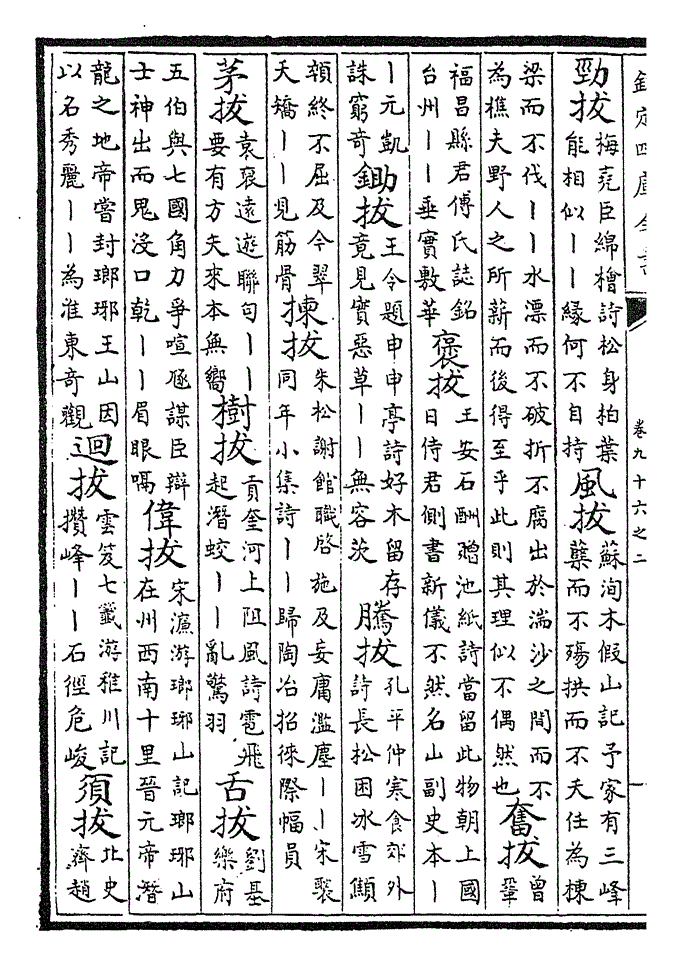 欽定四庫全書 卷九十六之二
勁拔 梅堯臣綿檜詩松身柏葉能相似丨丨緣何不自持 風拔 蘇洵木假山記予家有三峰蘖而不殤拱而不夭任為棟
梁而不伐丨丨水漂而不破折不腐出於湍沙之間而不為樵夫野人之所薪而後得至乎此則其理似不偶然也 奮拔 曾鞏
福昌縣君傅氏誌銘台州丨丨垂實敷華 褒拔 王安石酬贈池紙詩當留此物朝上國日侍君側書新儀不然名山副史本丨
丨元凱誅窮奇 鋤拔 王令題申申亭詩好木留存竟見實惡草丨丨無容茨 騰拔 孔平仲寒食郊外詩長松困冰雪顑
顇終不屈及今翠夭矯丨丨見筋骨 揀拔 朱松謝館職啓施及妄庸濫塵丨丨宋褧同年小集詩丨丨歸陶冶招徠際幅員
茅拔 袁裦遠遊聯句丨丨要有方矢來本無嚮 樹拔 貢奎河上阻風詩雹飛起潛蛟丨丨亂驚羽 舌拔 劉基樂府
五伯與七國角力爭喧豗謀臣辯士神出而鬼沒口乾丨丨眉眼喎 偉拔 宋濂游瑯琊山記瑯琊山在州西南十里晉元帝潛
龍之地帝嘗封瑯琊王山因以名秀麗丨丨為淮東奇觀 迴拔 雲笈七籤游稚川記攢峰丨丨石徑危峻 須拔 北史齊趙